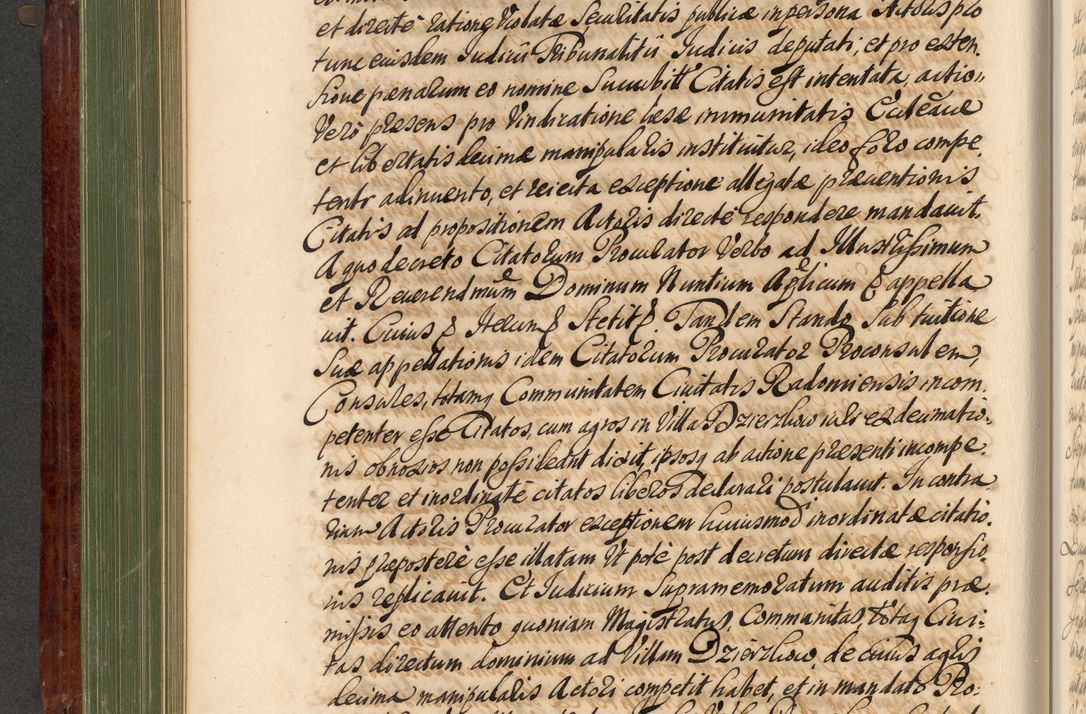 et directe ratione Violatæ Securitatis publicæ in persona Actoris pro
tunc eiusdem Judicii Tribunalitii Judicis deputati, et pro exten,
sione pænarum eo nomine Succubitt Citatis est intentata, actio,,
Vero præsens pro Vindicatione læsæ immunitatis Eccleæ
et libertatis decimæ manipularis instituitur, ideo foro compe,
tentr adinvento, et reiecta exceptione allegatæ præventionis
Citatis ad propositionem Actoris directe respondere mandavit,
A quo decreto Citatorum Procurator Verbo ad Illustrissimum
et Reverendmum Dominum Nuntium Aplicum & appella
vit. Cuius & Iterum & Stetit &. Tandem Stando sub tuitione
suæ appellationis idem Citatorum Procurator Proconsulem,
Consules, totamq Communitatem Civitatis Radomiensis incom,
petenter esse Citatos, cum agros in Villa Dzierzkow iuri ex decimatio,
nis obnoxios non possideant dixit, ipsosq ab actione præsenti incompe,
tenter et inordinate citatos liberos declarari postulavit. In contra
rium Actoris Procurator exceptionem huiusmodi inordinatæ citatio,
nis præpostere esse illatam Ut pote post decretum directæ responsio,
nis replicavit. Et Judicium Supramemoratum auditis præ,
missis eo attento quoniam Magistratus, Communitas, totaq Civi,
tas directum dominium ad Villam Dzierzkow, de cuius agris
decima manipularis Actori competit habet, et in mandato Pro,